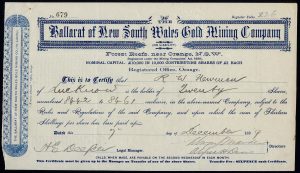 No. 679
Register Folio 236
THE
Ballarat of New South Wales Gold Mining Company
NO LIABILITY.
Forest Reefs, near Orange, N.S.W.
NOMINAL CAPITAL £12,000 IN 12,000 CONTRIBUTING SHARES OF £1 EACH
Registered Office, Orange.
This is to Certify that R. W.
of Lucknow is the holder of Twenty Shares,
numbered 8442 to 8461 inclusive, in the above-named Company, subject to the
Rules and Regulations of the said Company, and upon which the sum of Thirteen
Shillings per share has been paid up.
Dated this 7 day of December 189
Legal Manager.
CALLS, WHEN MADE, ARE PAYABLE ON THE SECOND WEDNESDAY IN EACH MONTH.
This Certificate must be given up to the Manager on Transfer of any of the above Shares. Transfer Fee—SIXPENCE each Certificate.